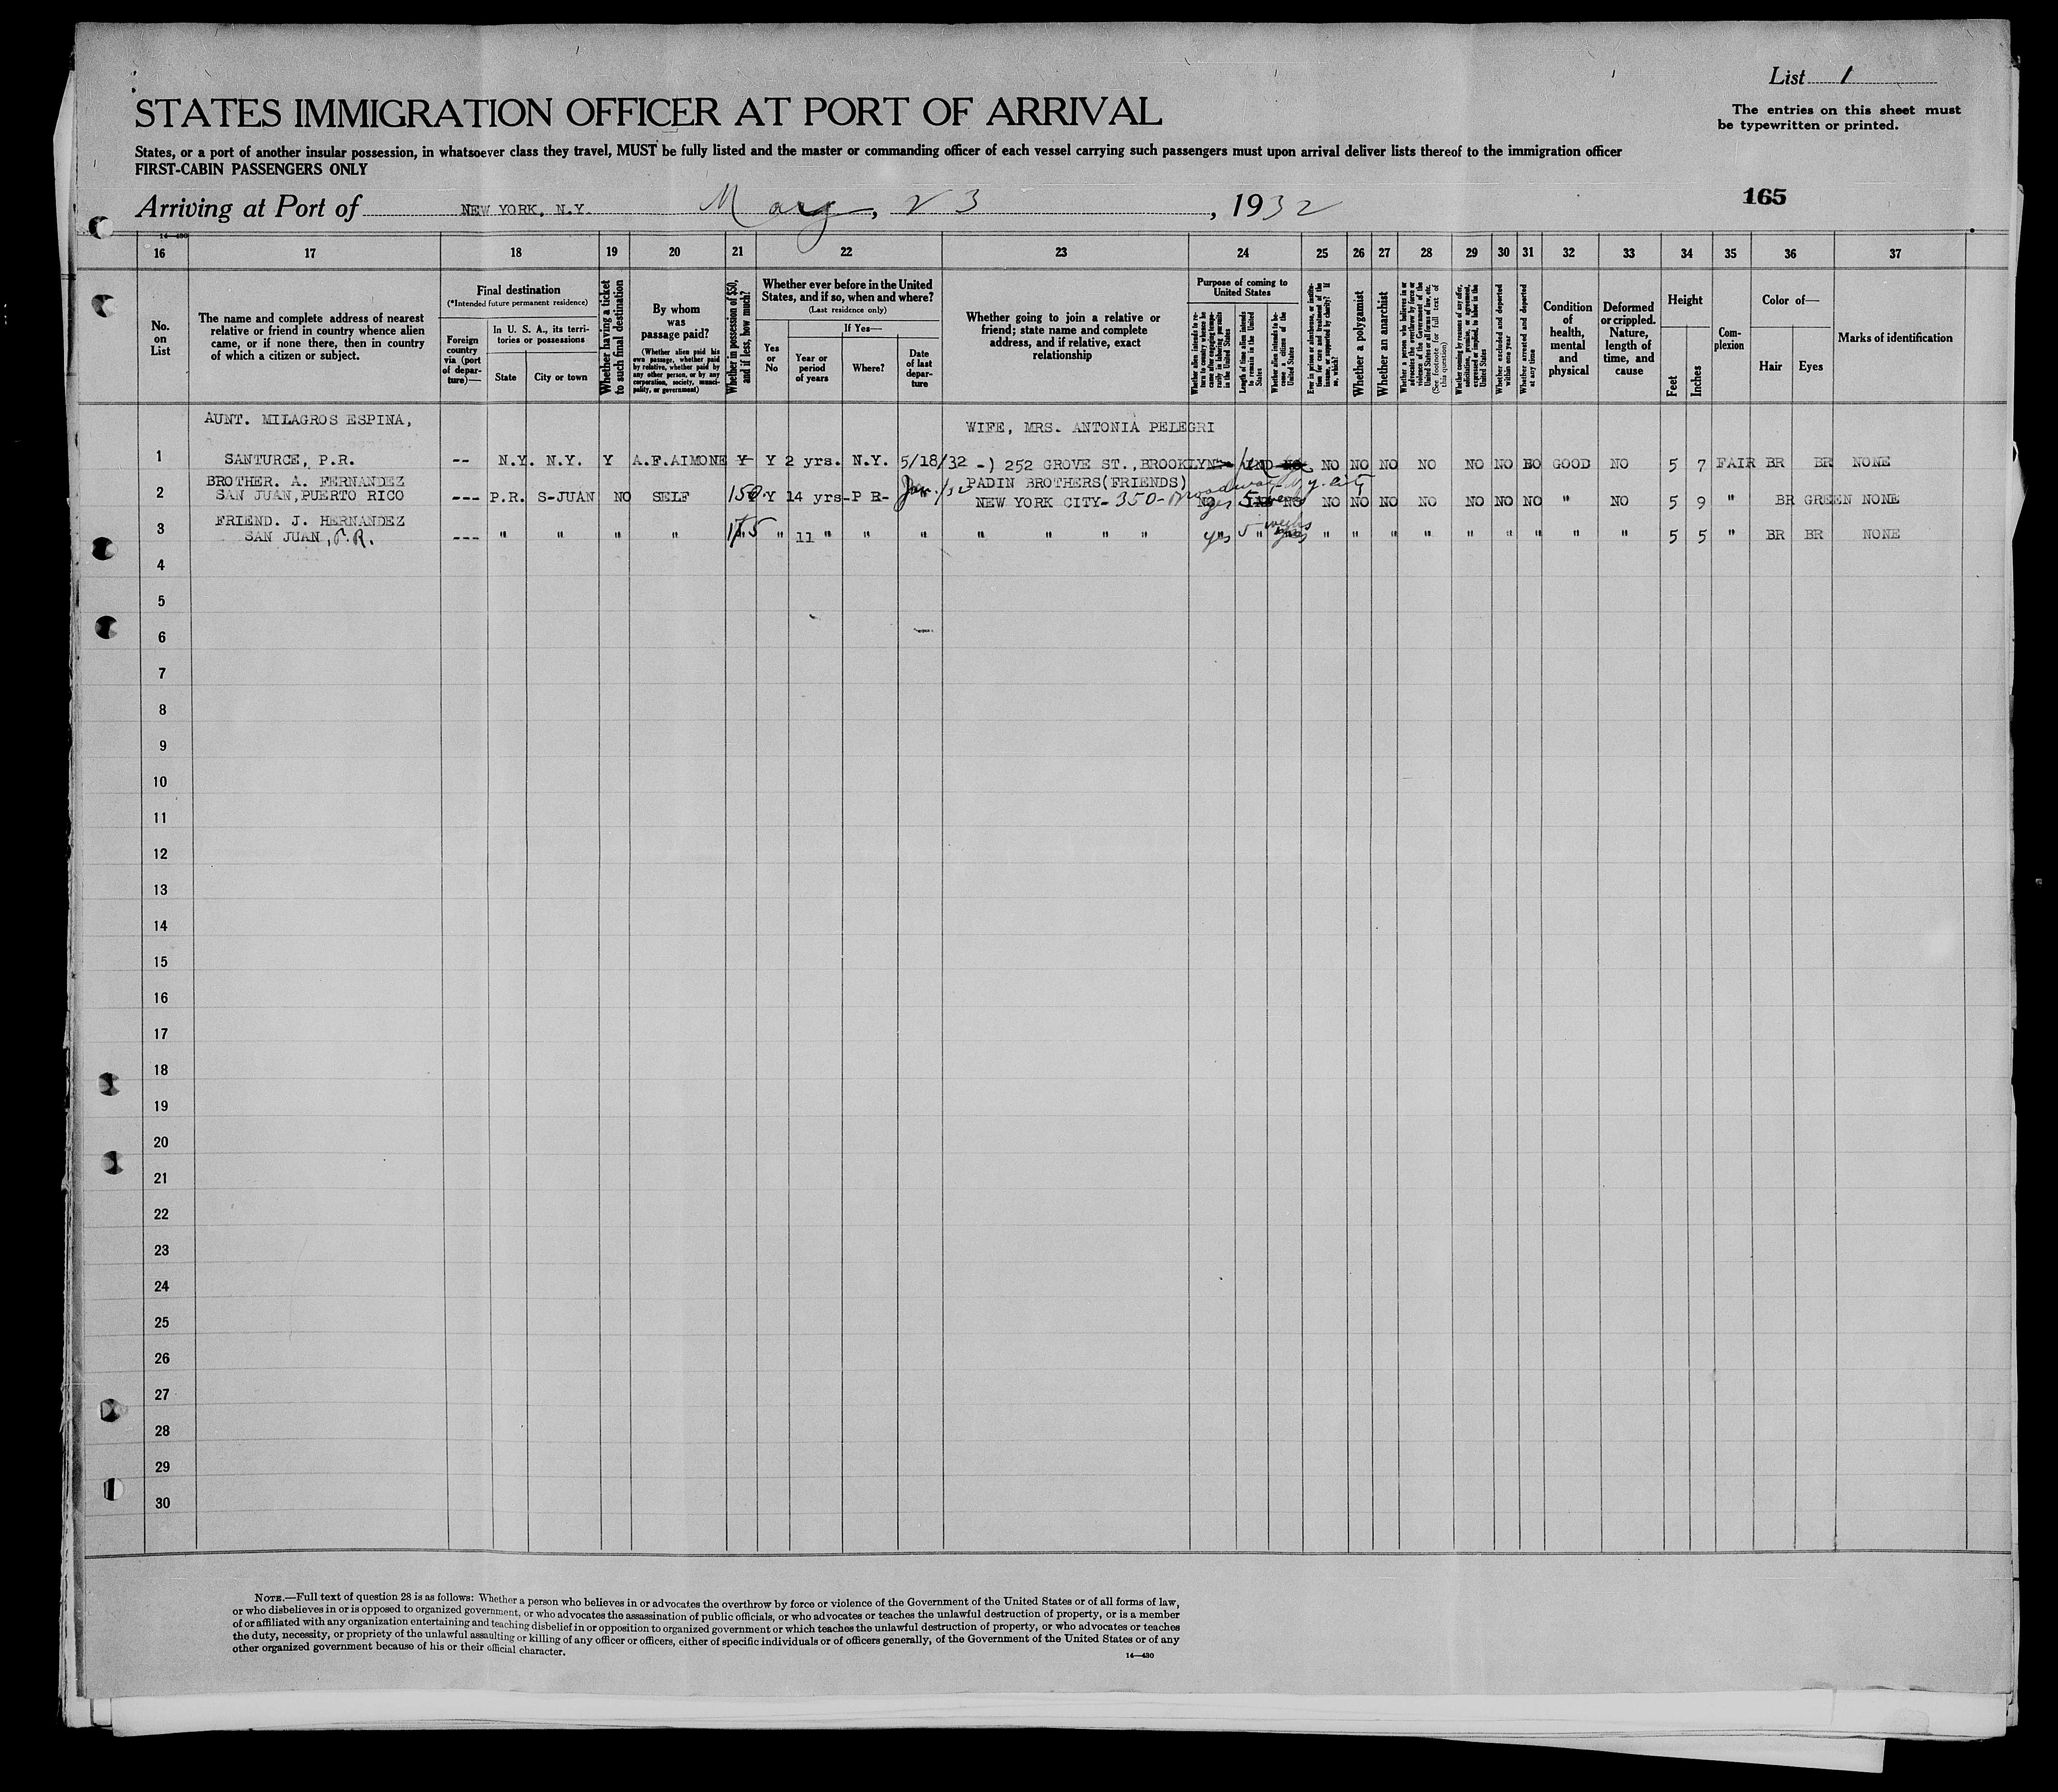 List 1
STATES IMMIGRATION OFFICER AT PORT OF ARRIVAL
The entries on this sheet must
be typewritten or printed.
States, or a port of another insular possession, in whatsoever class they travel, MUST be fully listed and the master or commanding officer of each vessel carrying such passengers must upon arrival deliver lists thereof to the immigration officer
FIRST-CABIN PASSENGERS ONLY
165
Arriving at Port of NEW YORK, N.Y. May, 23, 1932
14—430
16 17 18 19 20 21 22 23 24 25 26 27 28 29 30 31 32 33 34 35 36 37
No.
on
List
The name and complete address of nearest
relative or friend in country whence alien
came, or if none there, then in country
of which a citizen or subject.
Final destination
(*Intended future permanent residence)
Foreign
country
via (port
of depar-
ture)—
In U. S. A., its terri-
tories or possessions
State City or town
Whether having a ticket
to such final destination
By whom
was
passage paid?
(Whether alien paid his
own passage, whether paid
by relative, whether paid by
any other person, or by any
corporation, society, munici-
pality, or government)
Whether in possession of $50,
and if less, how much?
Whether ever before in the United
States, and if so, when and where?
(Last residence only)
Yes
or
No
If Yes—
Year or
period
of years
Where?
Date
of last
depar-
ture
Whether going to join a relative or
friend; state name and complete
address, and if relative, exact
relationship
Purpose of coming to
United States
Whether alien intends to re-
turn to country whence he
came after engaging tempo-
rarily in laboring pursuits
in the United States
Length of time alien intends
to remain in the United
States
Whether alien intends to be-
come a citizen of the
United States
Ever in prison or almshouse, or institu-
tion for care and treatment of the
insane, or supported by charity? If
so, which?
Whether a polygamist
Whether an anarchist
Whether a person who believes in or
advocates the overthrow by force or
violence of the Government of the
United States or all forms of law, etc.
(See footnote for full text of
this question)
Whether coming by reason of any offer,
solicitation, promise, or agreement,
expressed or implied, to labor in the
United States
Whether excluded and deported
within one year
Whether arrested and deported
at any time
Condition
of
health,
mental
and
physical
Deformed
or crippled.
Nature,
length of
time, and
cause
Height
Feet Inches
Com-
plexion
Color of—
Hair Eyes
Marks of identification
AUNT. MILAGROS ESPINA, WIFE, MRS. ANTONIA PELEGRI
1 SANTURCE, P.R. -- N.Y. N.Y. Y A.F.AIMONE Y Y 2 yrs. N.Y. 5/18/32 -) 252 GROVE ST.,BROOKLYN IND NO NO NO NO NO NO NO NO GOOD NO 5 7 FAIR BR BR NONE
BROTHER. A. FERNANDEZ PADIN BROTHERS(FRIENDS)
2 SAN JUAN,PUERTO RICO --- P.R. S-JUAN NO SELF 150 Y 14 yrs-P R- Jan./32 NEW YORK CITY- 350- Broadway- N.y. city NO yes 5 NO NO NO NO NO NO NO NO " NO 5 9 " BR GREEN NONE
FRIEND. J. HERNANDEZ
3 SAN JUAN, P.R. --- " " " " 175 " 11 " " " " " " " yes 5 weeks " " " " " " " " " " 5 5 " BR BR NONE
4
5
6
7
8
9
10
11
12
13
14
15
16
17
18
19
20
21
22
23
24
25
26
27
28
29
30
NOTE.—Full text of question 28 is as follows: Whether a person who believes in or advocates the overthrow by force or violence of the Government of the United States or of all forms of law,
or who disbelieves in or is opposed to organized government, or who advocates the assassination of public officials, or who advocates or teaches the unlawful destruction of property, or is a member
of or affiliated with any organization entertaining and teaching disbelief in or opposition to organized government or which teaches the unlawful destruction of property, or who advocates or teaches
the duty, necessity, or propriety of the unlawful assaulting or killing of any officer or officers, either of specific individuals or of officers generally, of the Government of the United States or of any
other organized government because of his or their official character.
14—430